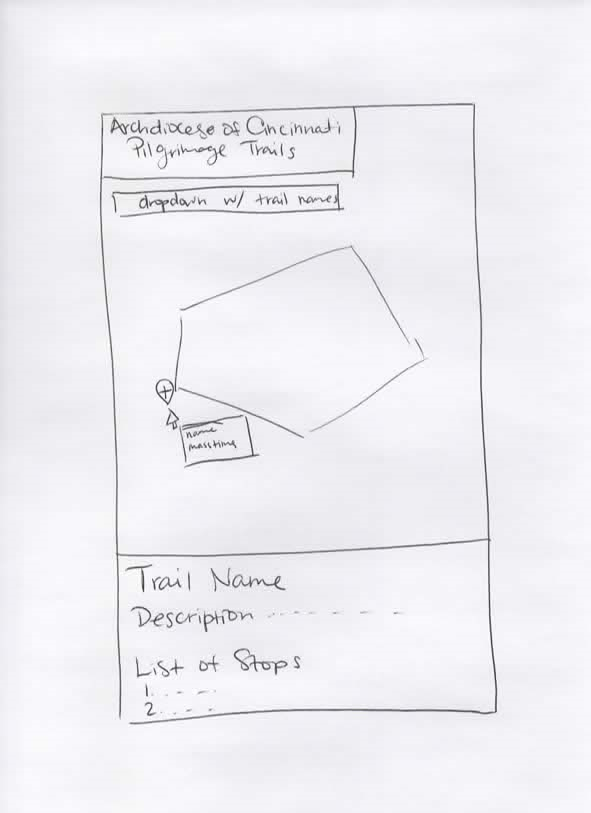 Archdiocese of Cincinnati
Pilgrimage Trails
dropdown w/ trail names
name
mass time
Trail Name
Description - - - - - - -
List of Stops
1. - - - -
2. - - - -